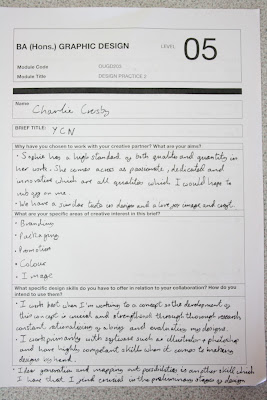 BA (Hons.) GRAPHIC DESIGN
LEVEL 05
Module Code OUGD203
Module Title DESIGN PRACTICE 2
Name
Charlie Crosby
BRIEF TITLE: YCN
Why have you chosen to work with your creative partner? What are your aims?
• Sophie has a high standard of both quality and quantity in
her work. She comes across as passionate, dedicated and
innovative which are all qualities which I would hope to
rub off on me.
• We have a similar taste in design and a love for image and craft.
What are your specific areas of creative interest in this brief?
• Branding
• Packaging
• Promotion
• Colour
• Image
What specific design skills do you have to offer in relation to your collaboration? How do you
intend to use them?
• I work best when I'm working to a concept so the development of
this concept is crucial and strengthened through thorough research
constant rationalising of ideas and evaluating my designs.
• I work primarily with software such as illustrator + photoshop
and have highly competent skills when it comes to making
designs by hand.
• Idea generation and mapping out possibilities is another skill which
I have that I find crucial in the preliminary stages of design